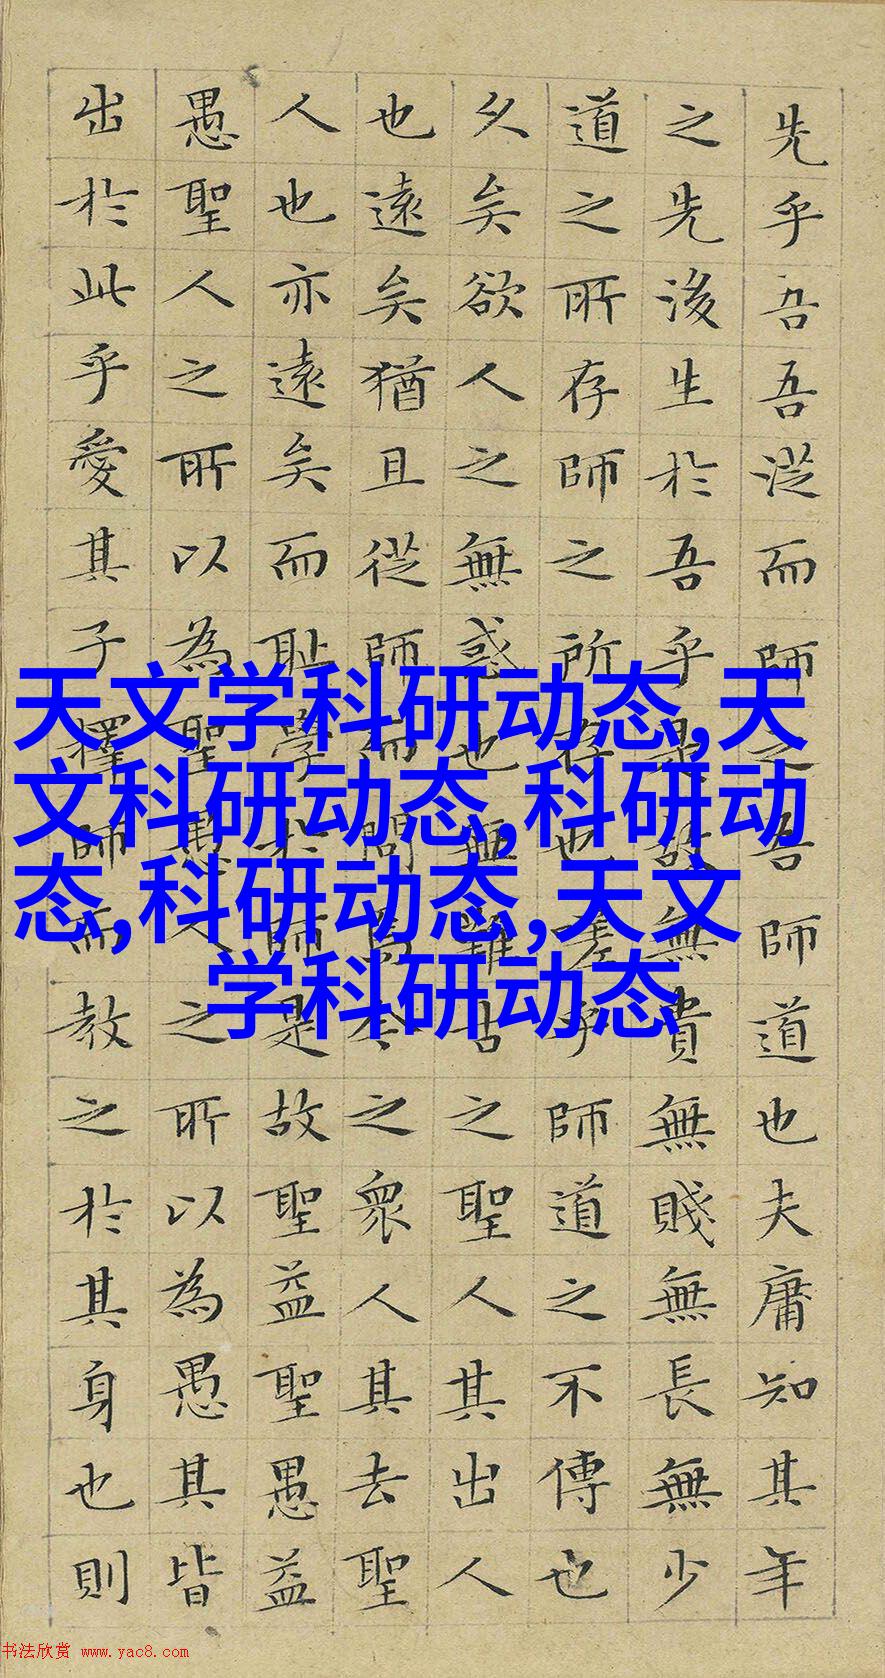 先乎吾吾從而師之吾師道也夫庸知其年
之先後生於吾乎是故無貴無賤無長無少
道之所存師之所存也嗟乎師道之不傳也
久矣欲人之無惑也無難古之聖人其出人
也遠矣猶且從師而問焉今之衆人其去聖
人也亦遠矣而耻學於師是故聖益聖愚益
愚聖人之所以為聖愚人之所以為愚其皆
出於此乎愛其子擇師而教之於其身也則
天文学科研动态,天
文科研动态,科研动
态,科研动态,天文
学科研动态
书法欣赏 www.yac8.com